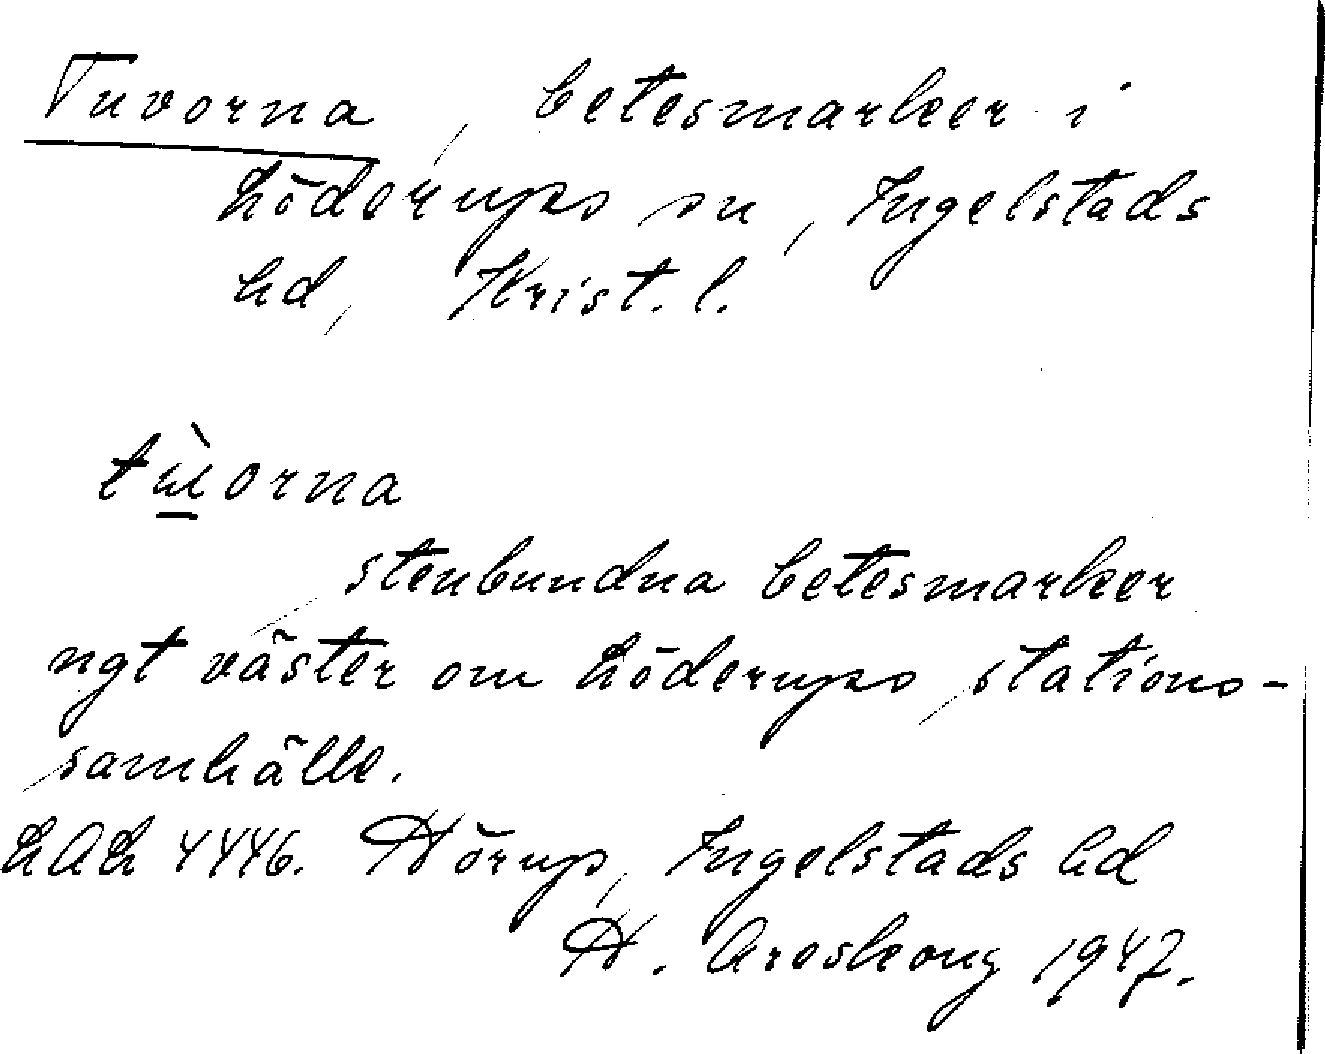 Tuvorna, betesmarker i
Löderups sn, Ingelstads
hd, Krist. l.
tẁ̱orna
stenbundna betesmarker
ngt väster om Löderups stations-
samhälle.
LAL 4446. Hörup, Ingelstads hd
H. Areskoug 1947.